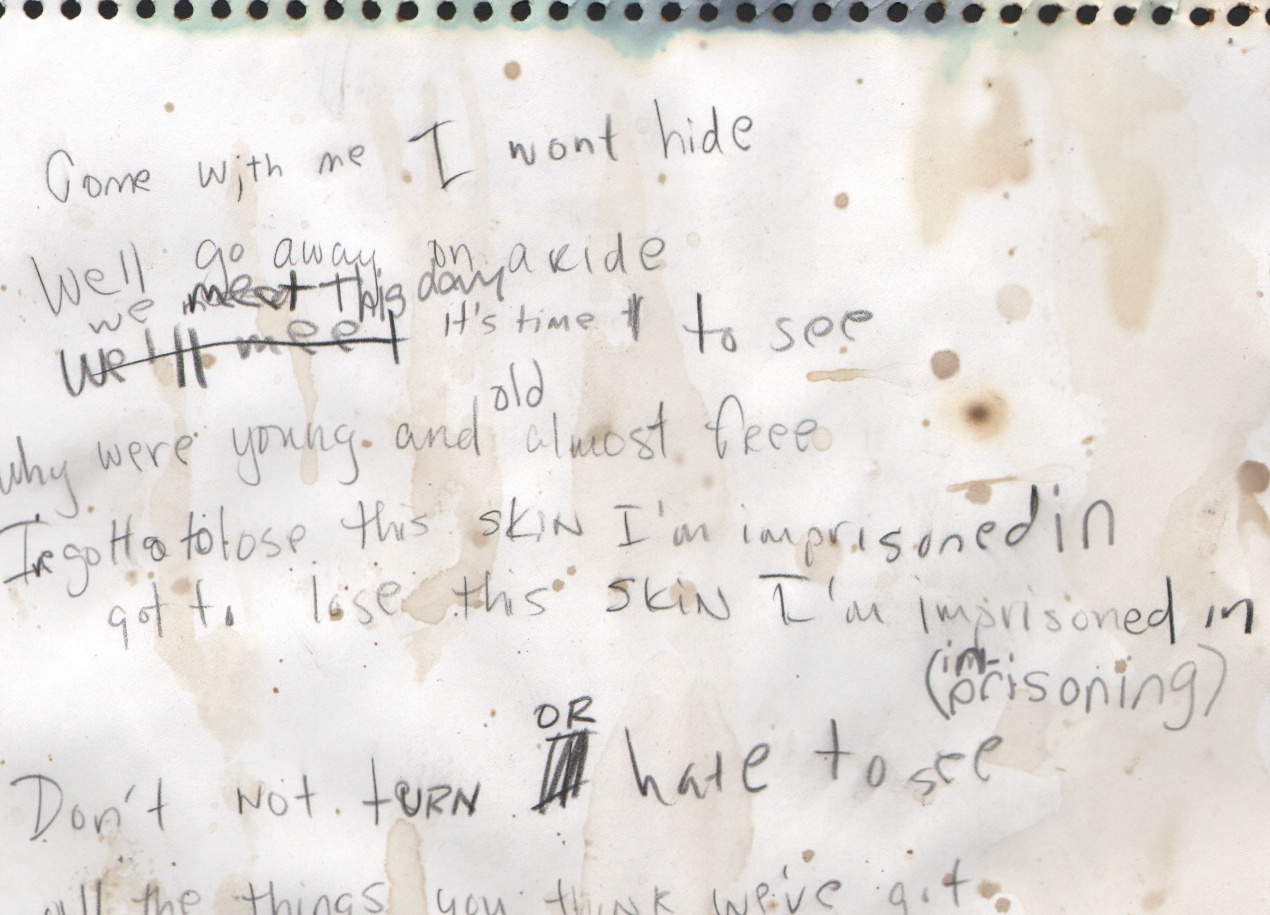 Come with me I wont hide
We'll go away on a ride
we meet this day
We'll meet it's time to see
old
why were young and almost free
I've gotta to lose this SKIN I'm imprisoned in
got to lose this SKIN I'm imprisoned in
(im-prisoning)
OR
Don't NOT tURN hate to see
all the things you thiNK we've got